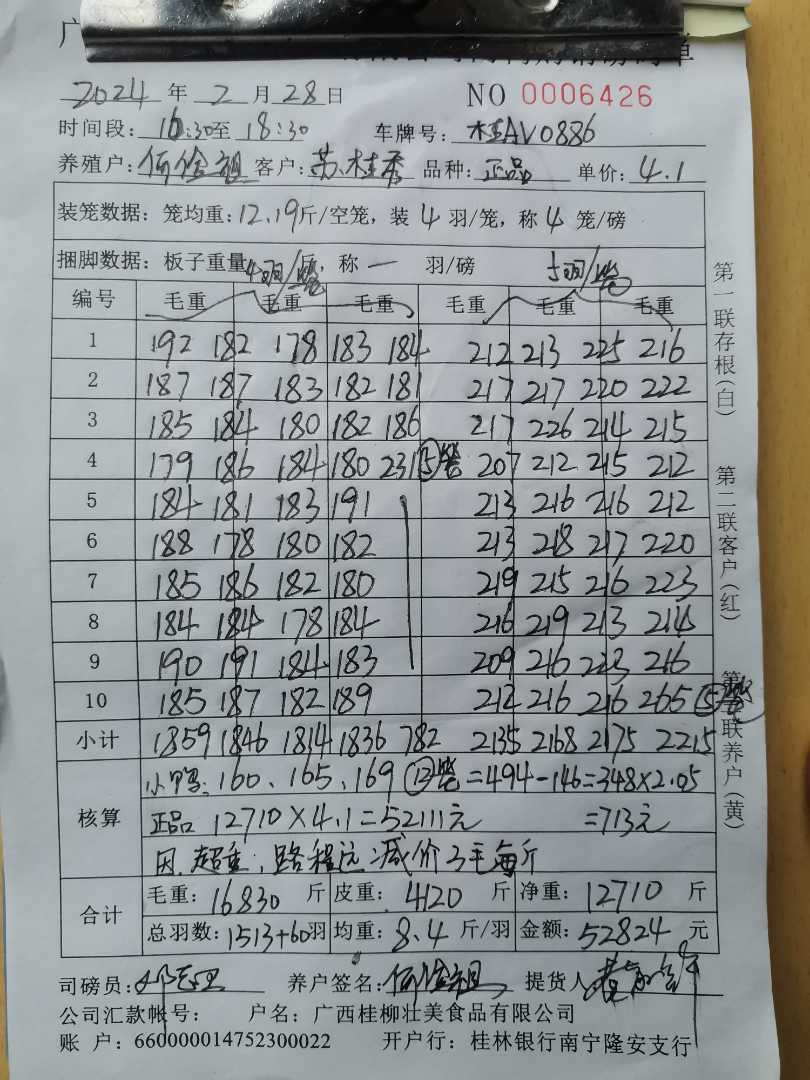 广
2024年2月28日 NO 0006426
时间段：16:30至18:30 车牌号：桂AV0886
养殖户：何俭祖 客户：苏桂秀 品种：正品 单价：4.1
装笼数据：笼均重：12.19斤/空笼，装4羽/笼，称4笼/磅
捆脚数据：板子重量 斤，称一羽/磅
4羽/笼 5羽/笼
编号 毛重 毛重 毛重 毛重 毛重 毛重
1 192 182 178 183 184 212 213 225 216
2 187 187 183 182 181 217 217 220 222
3 185 184 180 182 186 217 226 214 215
4 179 186 184 180 231 ⑤笼 207 212 215 212
5 184 181 183 191 213 216 216 212
6 188 178 180 182 213 218 217 220
7 185 186 182 180 219 215 216 223
8 184 184 178 184 216 219 213 214
9 190 191 184 183 209 216 223 216
10 185 187 182 189 212 216 216 265 ⑤笼
小计 1859 1846 1814 1836 782 2135 2168 2175 2215
核算
小鸭：160、165、169 ⑫笼=494-146=348×2.05
正品 12710×4.1=52111元 =713元
因超重，路程远减价3毛每斤
合计
毛重：16830斤 皮重：4120斤 净重：12710斤
总羽数：1513+60羽 均重：8.4斤/羽 金额：52824元
司磅员： 养户签名：何俭祖 提货人
公司汇款帐号： 户名：广西桂柳壮美食品有限公司
账 户：660000014752300022 开户行：桂林银行南宁隆安支行
第一联存根（白） 第二联客户（红） 第三联养户（黄）